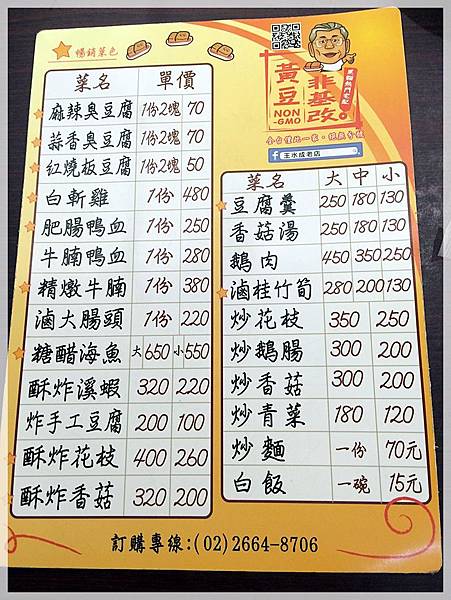 暢銷菜色
菜名 單價
麻辣臭豆腐 1份2塊 70
蒜香臭豆腐 1份2塊 70
紅燒板豆腐 1份2塊 50
白斬雞 1份 480
肥腸鴨血 1份 250
牛腩鴨血 1份 280
精燉牛腩 1份 380
滷大腸頭 1份 220
糖醋海魚 大650 小550
酥炸溪蝦 320 220
炸手工豆腐 200 100
酥炸花枝 400 260
酥炸香菇 320 200
非基改
黃豆
NON
-GMO
全台僅此一家，絕無分號
f 王水成老店
菜名 大 中 小
豆腐羹 250 180 130
香菇湯 250 180 130
鵝肉 450 350 250
滷桂竹筍 280 200 130
炒花枝 350 250
炒鵝腸 300 200
炒香菇 300 200
炒青菜 180 120
炒麵 一份 70元
白飯 一碗 15元
訂購專線:(02)2664-8706